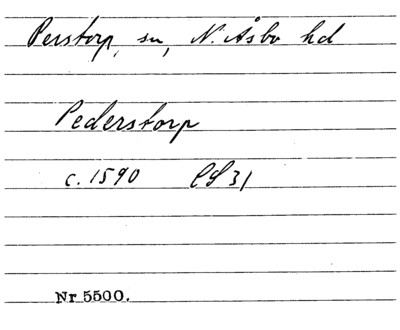 Perstorp, sn, N. Åsbo hd
Pederstorp
c. 1590 LS 31
Nr 5500.